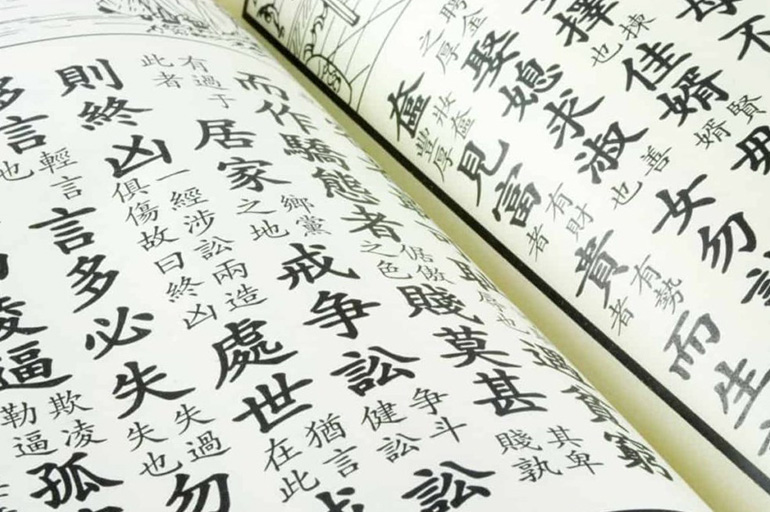 擇揀也佳婿賢婿毋
聘金之厚娶媳求淑善也女勿
奩妝奩豐厚見富有財者貴有勢者而生
而作驕態者倨傲之色賤莫甚其卑賤孰
有過于此者居家鄉黨之地戒争訟争斗健訟訟
則終凶一經涉訟兩造俱傷故曰終凶處世猶言在此戒
多言輕言也言多必失失過失也勿
凌逼欺凌勒逼孤